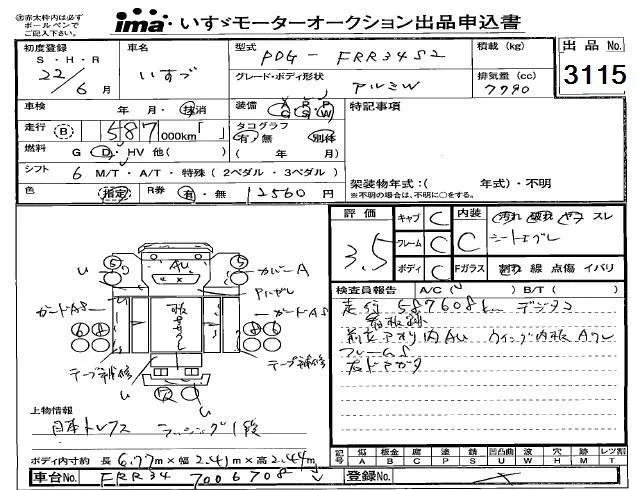 赤太枠内は必ず
ボールペンで
ご記入下さい。
ima いすゞモーターオークション出品申込書
初度登録
S・H・R
22/6 月
車名
いすゞ
型式
PDG-FRR34S2
積載(kg)
出品No.
3115
グレード・ボディ形状
アルミW
排気量(cc)
7790
車検 年 月・抹消
装備 A R P
C S W
特記事項
走行 B 587 000km「 」
タコグラフ
有・無 別体
( 年 月)
燃料 G D HV 他( )
シフト 6 M/T・A/T・特殊(2ペダル・3ペダル)
架装物年式:( 年式)・不明
※不明の場合は、不明に○をする。
色 指定 R券 有・無 12560 円
評価
3.5
キャブ C
フレーム C
ボディ C
内装 C
汚れ 破れ ヤケ スレ
シート
Fガラス 割れ 線 点傷 イバリ
検査員報告 A/C( ) B/T( )
走行587608km デジタコ
看板跡
内AU ウイング内板Aワレ
フレームS
AU
カバーA
ガードAS
ガードAS
テープ補修
テープ補修
上物情報
日本トレクス ラッシング1段
ボディ内寸約 長6.77m×幅2.41m×高2.44m
記号 傷A 板金B 腐C 塗P 錆S 凹凸曲U 波W 穴H 跡M レツ割T
車台No. FRR34-7006708
登録No.